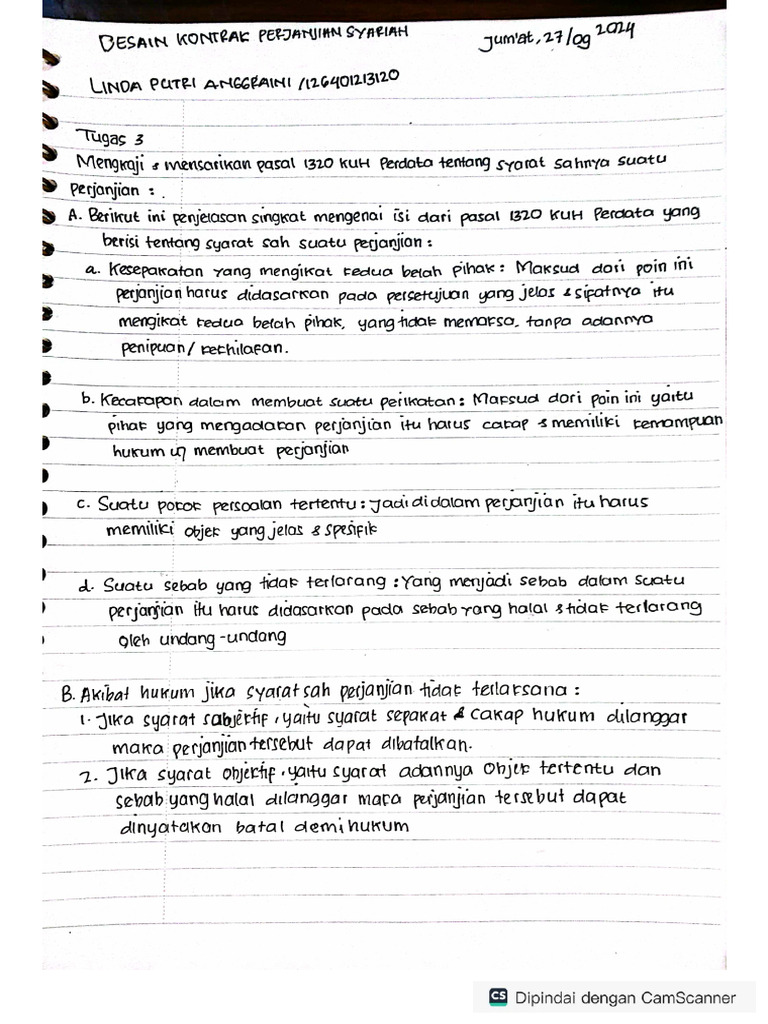 DESAIN KONTRAK PERJANJIAN SYARIAH
Jum'at, 27/09 2024
LINDA PUTRI ANGGRAINI /126401213120
Tugas 3
Mengkaji & mensarikan pasal 1320 KUH Perdata tentang syarat sahnya suatu
perjanjian :
A. Berikut ini penjelasan singkat mengenai isi dari pasal 1320 KUH Perdata yang
berisi tentang syarat sah suatu perjanjian :
a. Kesepakatan yang mengikat kedua belah pihak : Maksud dari poin ini
perjanjian harus didasarkan pada persetujuan yang jelas & sifatnya itu
mengikat kedua belah pihak, yang tidak memaksa, tanpa adannya
penipuan / kekhilafan.
b. Kecakapan dalam membuat suatu perikatan : Maksud dari poin ini yaitu
pihak yang mengadakan perjanjian itu harus cakap & memiliki kemampuan
hukum u/ membuat perjanjian
c. Suatu pokok persoalan tertentu : Jadi didalam perjanjian itu harus
memiliki objek yang jelas & spesifik
d. Suatu sebab yang tidak terlarang : Yang menjadi sebab dalam suatu
perjanjian itu harus didasarkan pada sebab yang halal & tidak terlarang
oleh undang-undang
B. Akibat hukum jika syarat sah perjanjian tidak terlaksana :
1. Jika syarat sabjektif, yaitu syarat sepakat & cakap hukum dilanggar
maka perjanjian tersebut dapat dibatalkan.
2. Jika syarat objektif, yaitu syarat adannya objek tertentu dan
sebab yang halal dilanggar maka perjanjian tersebut dapat
dinyatakan batal demi hukum
CS Dipindai dengan CamScanner